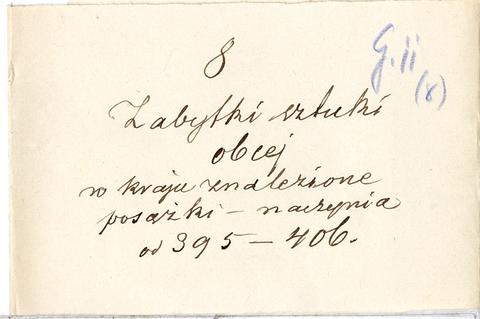 8
G. ii
(8)
Zabytki sztuki
obcej
w kraju znalezione
posążki – naczynia
od 395 – 406.